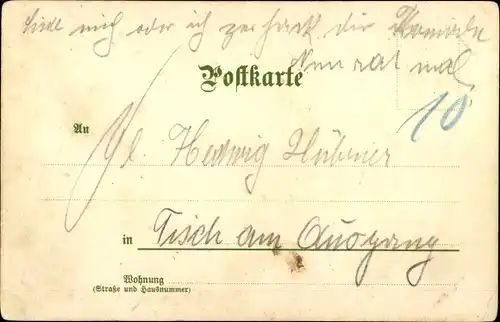 Liebe mich oder ich zerhack dir Kommode
Nun rat mal
Postkarte
10
An Fl. Hedwig Hübner
in Tisch am Ausgang
Wohnung
(Straße und Hausnummer)